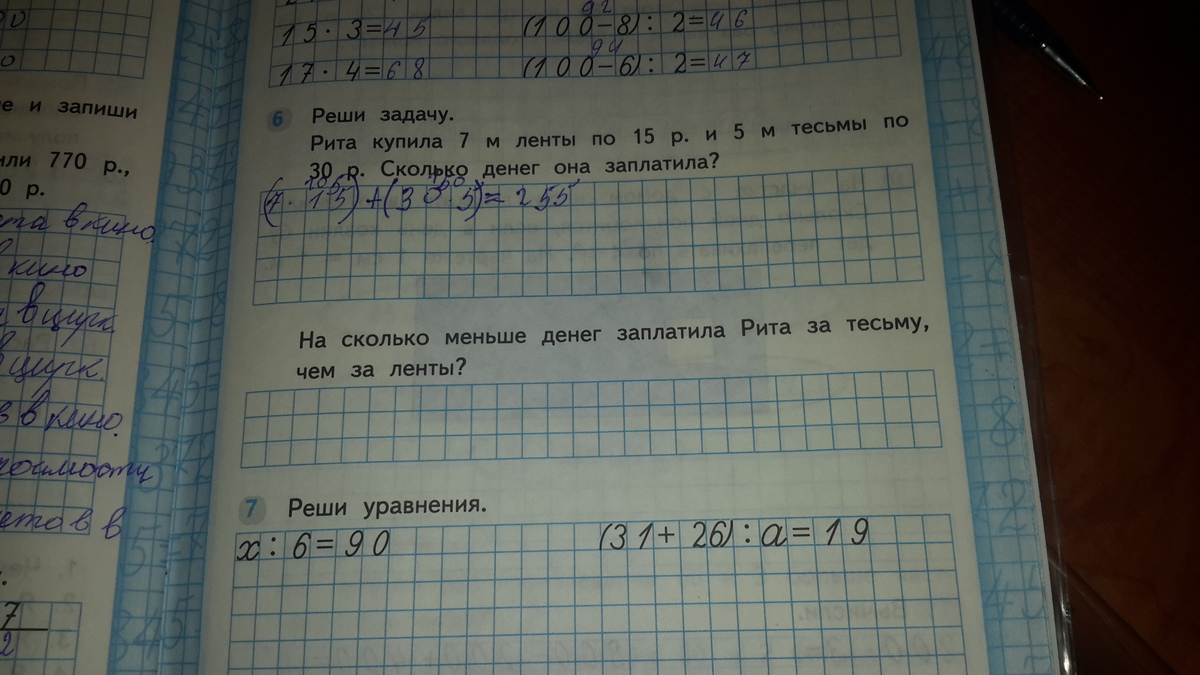 15 · 3 = 45
(100 − 8) : 2 = 46
92
17 · 4 = 68
(100 − 6) : 2 = 47
94
е и запиши
или 770 р.,
0 р.
та в кино.
кино
в цирк
цирк.
в в кино.
7
2
6 Реши задачу.
Рита купила 7 м ленты по 15 р. и 5 м тесьмы по
30 р. Сколько денег она заплатила?
105 150
(7 · 15) + (30 · 5) = 255
На сколько меньше денег заплатила Рита за тесьму,
чем за ленты?
7 Реши уравнения.
x : 6 = 90
(31 + 26) : a = 19